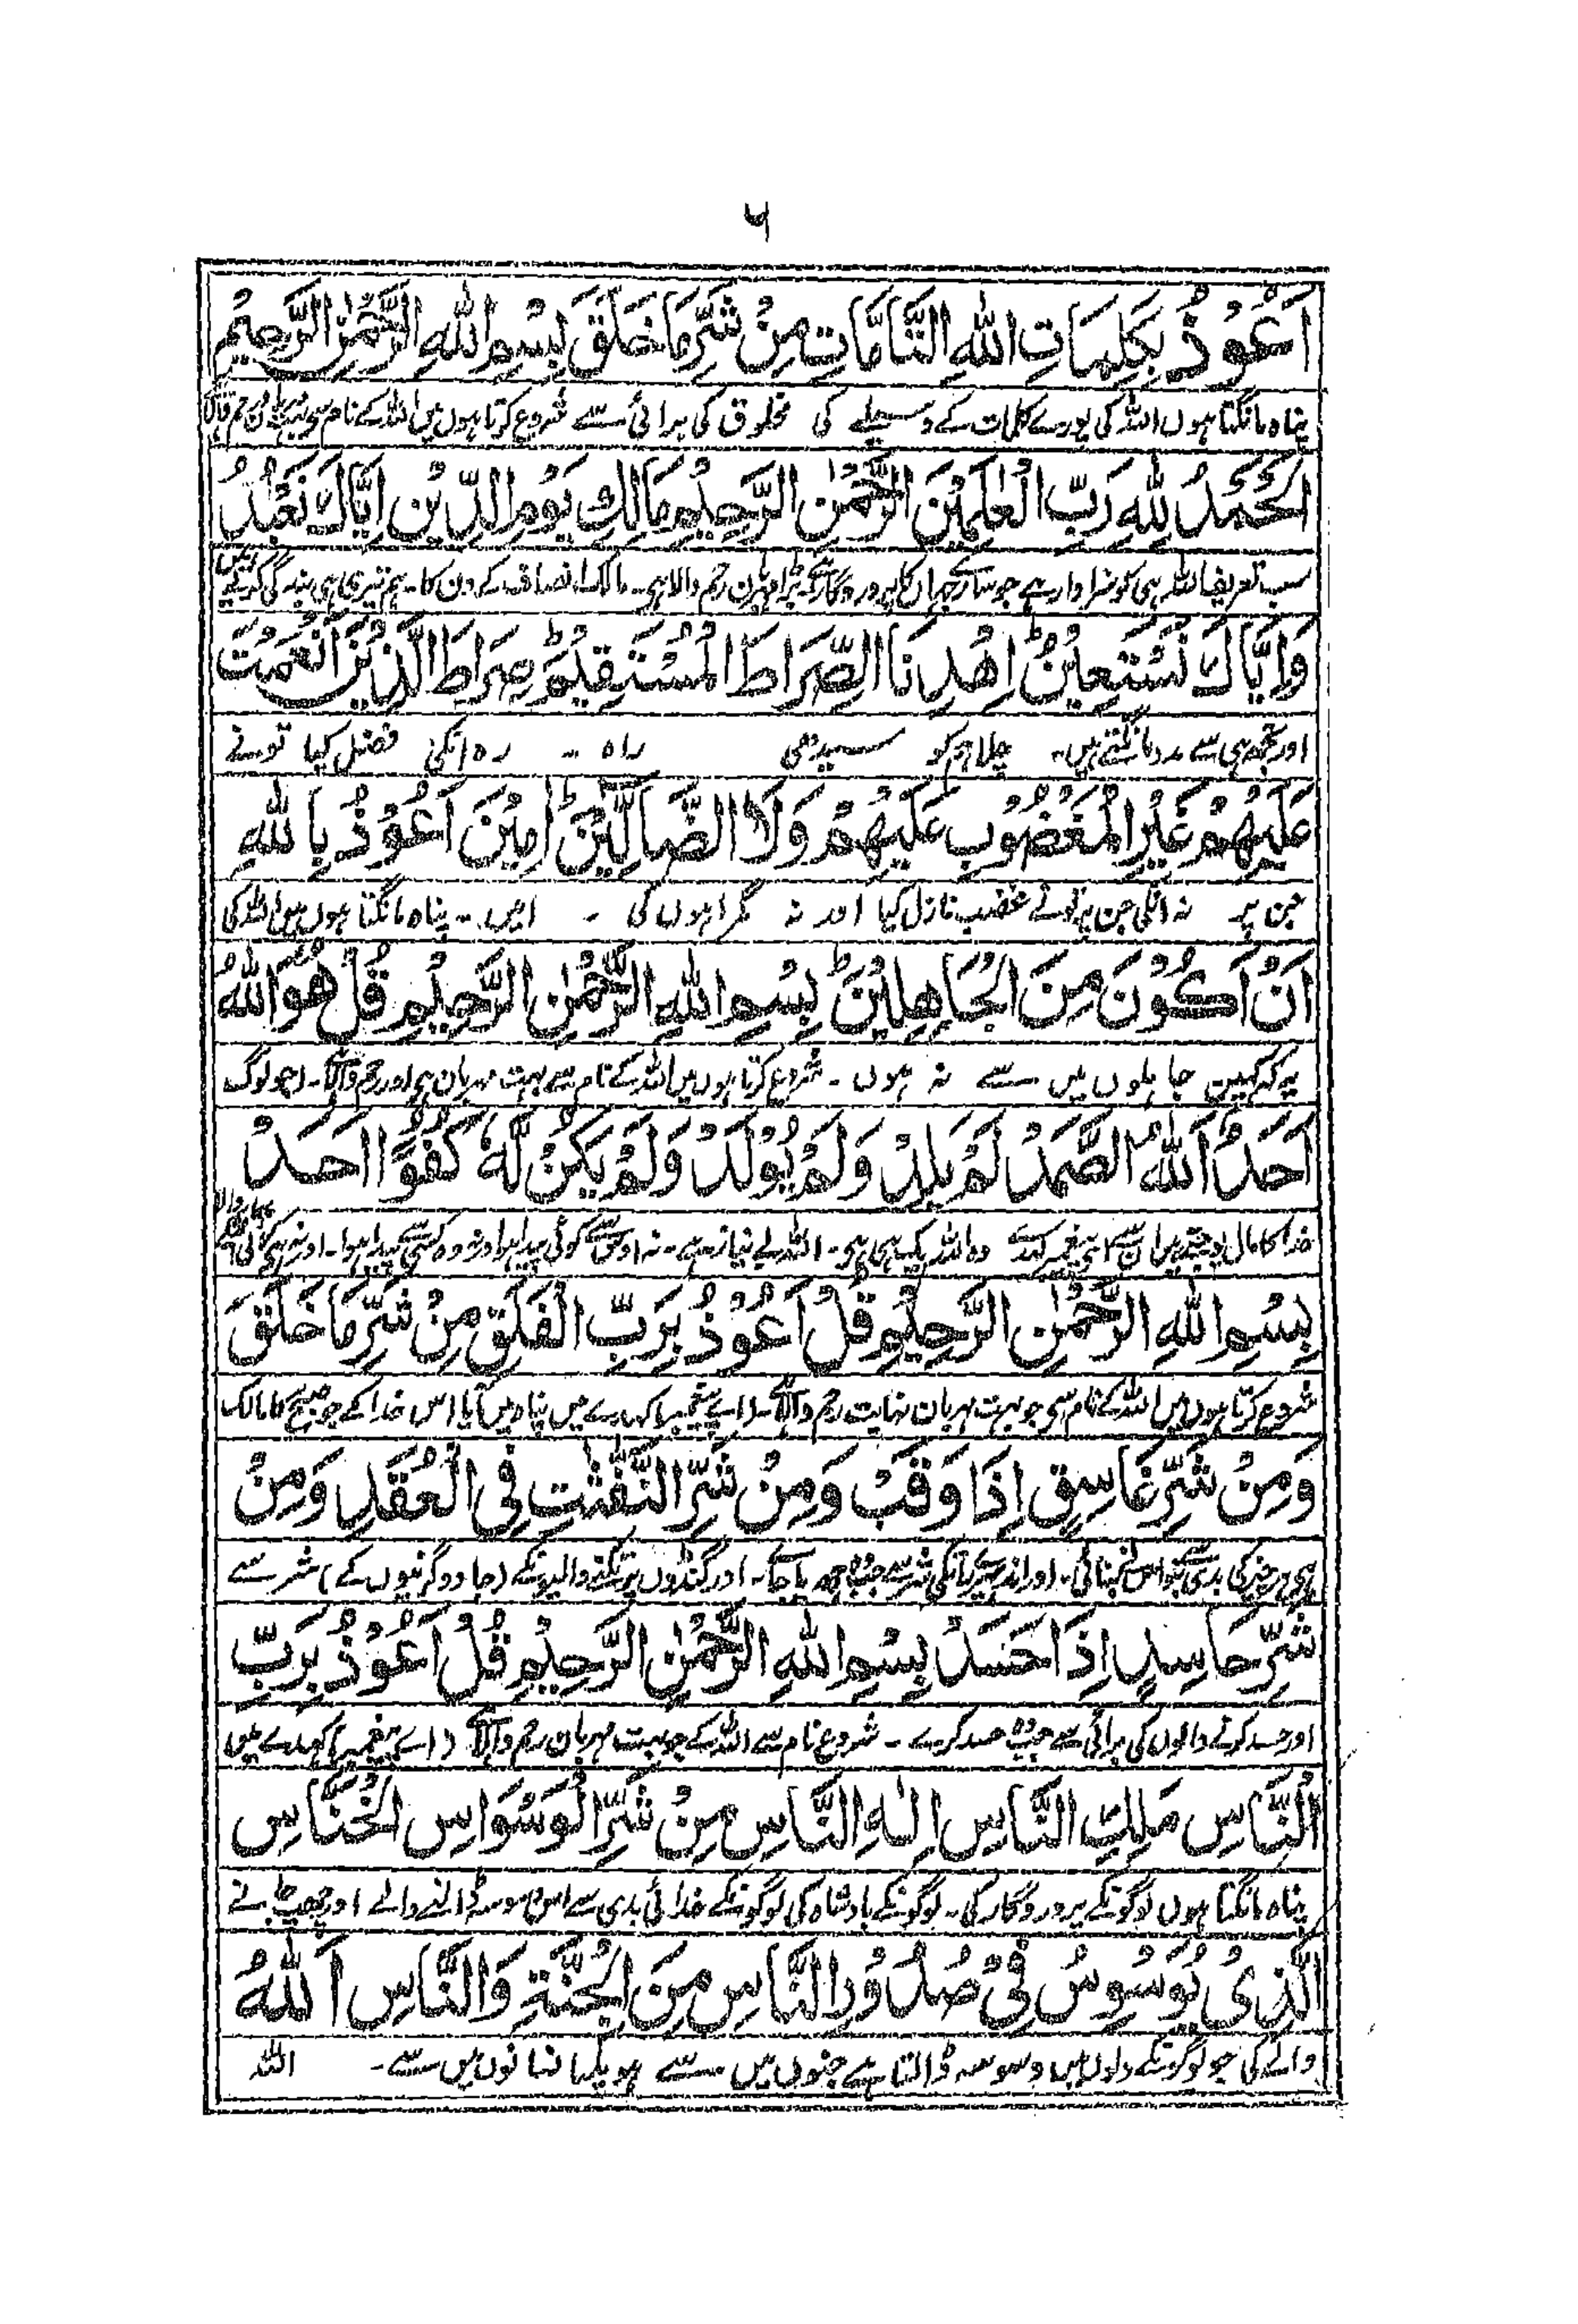 ۶
اَعُوْذُ بِكَلِمَاتِ اللّٰهِ التَّامَّاتِ مِنْ شَرِّ مَا خَلَقَ بِسْمِ اللّٰهِ الرَّحْمٰنِ الرَّحِيْمِ
پناہ مانگتا ہوں اللہ کی پورے کلمات کے وسیلے کی مخلوق کی برائی سے شروع کرتا ہوں میں اللہ کے نام سے
اَلْحَمْدُ لِلّٰهِ رَبِّ الْعٰلَمِيْنَ الرَّحْمٰنِ الرَّحِيْمِ مَالِكِ يَوْمِ الدِّيْنِ اِيَّاكَ نَعْبُدُ
سب تعریف اللہ ہی کو سزاوار ہے جو سارے جہان کا پروردگار ہے۔ بڑا مہربان رحم والا ہی۔ مالک انصاف کے دن کا۔ ہم تیری ہی بندگی کرتے ہیں
وَاِيَّاكَ نَسْتَعِيْنُ ؕ اِهْدِنَا الصِّرَاطَ الْمُسْتَقِيْمَ ؕ صِرَاطَ الَّذِيْنَ اَنْعَمْتَ
اور تجھ ہی سے مدد مانگتے ہیں۔ چلا ہم کو سیدھی راہ ۔ رہ انکی فضل کیا تونے
عَلَيْهِمْ غَيْرِ الْمَغْضُوْبِ عَلَيْهِمْ وَلَا الضَّالِّيْنَ ؕ اٰمِيْنَ اَعُوْذُ بِاللّٰهِ
جن پر نہ انکی جن پر تونے غضب نازل کیا اور نہ گمراہوں کی ۔ امیں ۔ پناہ مانگتا ہوں میں اللہ کی
اَنْ اَكُوْنَ مِنَ الْجَاهِلِيْنَ ؕ بِسْمِ اللّٰهِ الرَّحْمٰنِ الرَّحِيْمِ قُلْ هُوَ اللّٰهُ
یہ کہ کہیں جاہلوں میں سے نہ ہوں ۔ شروع کرتا ہوں میں اللہ کے نام سے بہت مہربان ہی اور رحم والا۔ (جو لوگ
اَحَدٌ اَللّٰهُ الصَّمَدُ لَمْ يَلِدْ وَلَمْ يُوْلَدْ وَلَمْ يَكُنْ لَّهٗ كُفُوًا اَحَدٌ
خدا کا حال پوچھتے ہیں ان سے اے پیغمبر کہدے وہ اللہ ایک ہی ہی۔ اللہ بے نیاز ہے۔ نہ اوس سے کوئی پیدا ہوا اور نہ وہ کسی سے پیدا ہوا۔ اور نہ ہی
بِسْمِ اللّٰهِ الرَّحْمٰنِ الرَّحِيْمِ قُلْ اَعُوْذُ بِرَبِّ الْفَلَقِ مِنْ شَرِّ مَا خَلَقَ
شروع کرتا ہوں میں اللہ کے نام سی جو بہت مہربان نہایت رحم والا ہے۔ (اے پیغمبر) کہدے میں پناہ میں آیا اس خدا کے جو صبح کا مالک
وَمِنْ شَرِّ غَاسِقٍ اِذَا وَقَبَ وَمِنْ شَرِّ النَّفّٰثٰتِ فِي الْعُقَدِ وَمِنْ
ہی ہر چیز کی بدی سے جو اس نے بنائی۔ اور اندھیری رات کی شر سے جب وہ چھا جاے۔ اور گنڈوں پر پھکنے والیونکے (جادوگرنیوں کے) شر سے
شَرِّ حَاسِدٍ اِذَا حَسَدَ بِسْمِ اللّٰهِ الرَّحْمٰنِ الرَّحِيْمِ قُلْ اَعُوْذُ بِرَبِّ
اور حسد کرنے والوں کی برائی سے جب وہ حسد کرے ۔ شروع نام سے اللہ کے جو بہت مہربان رحم والا ہے (اے پیغمبر) کہدے میں
النَّاسِ مَلِكِ النَّاسِ اِلٰهِ النَّاسِ مِنْ شَرِّ الْوَسْوَاسِ الْخَنَّاسِ
پناہ مانگتا ہوں لوگونکے پروردگار کی۔ لوگونکے بادشاہ کی لوگونکے خدا کی بدی سے اس وسوسہ ڈالنے والے اور چھپ جانے
الَّذِيْ يُوَسْوِسُ فِيْ صُدُوْرِ النَّاسِ مِنَ الْجِنَّةِ وَالنَّاسِ اَللّٰهُ
والے کی جو لوگونکے دلوں میں وسوسہ ڈالتا ہے جنوں میں سے ہو یا انسانوں میں سے ۔ اللہ